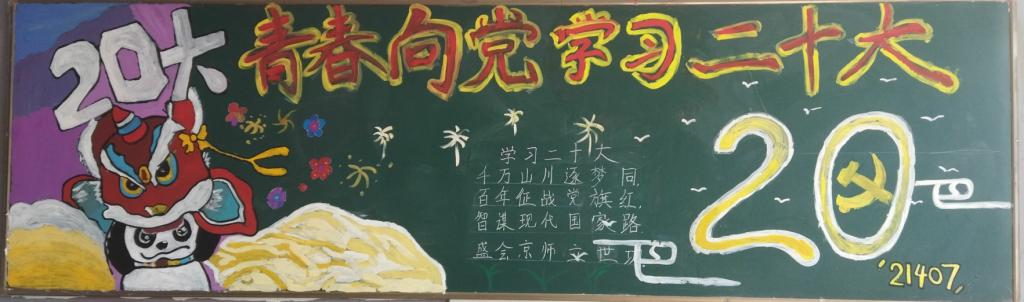 20大
青春向党学习二十大
学习二十大
千万山川逐梦同,
百年征战党旗红,
智谋现代国家路
盛会京师立世
20
21407,